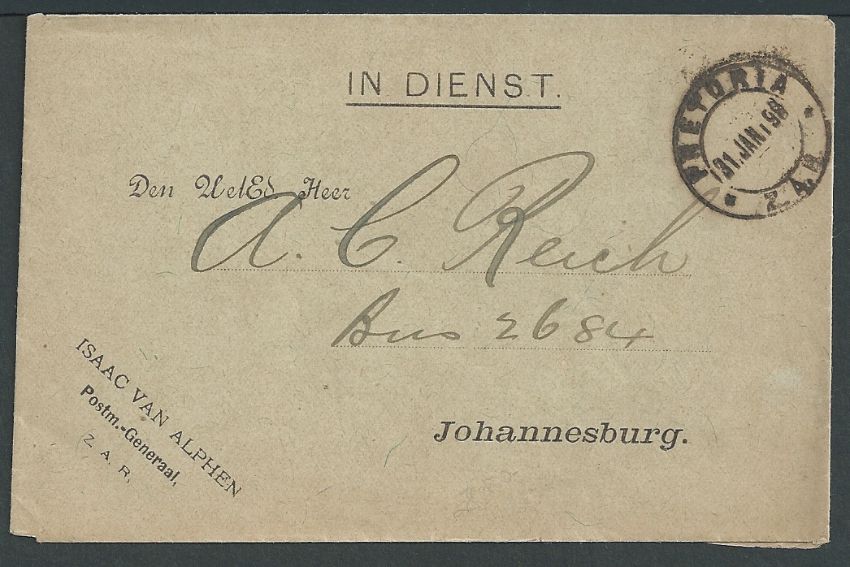 IN DIENST.
PRETORIA
31.JAN 98
Z.A.R.
Den UelEd Heer
A. C. Reich
Bus 2684
Johannesburg.
ISAAC VAN ALPHEN
Postm.-Generaal,
Z. A. R.